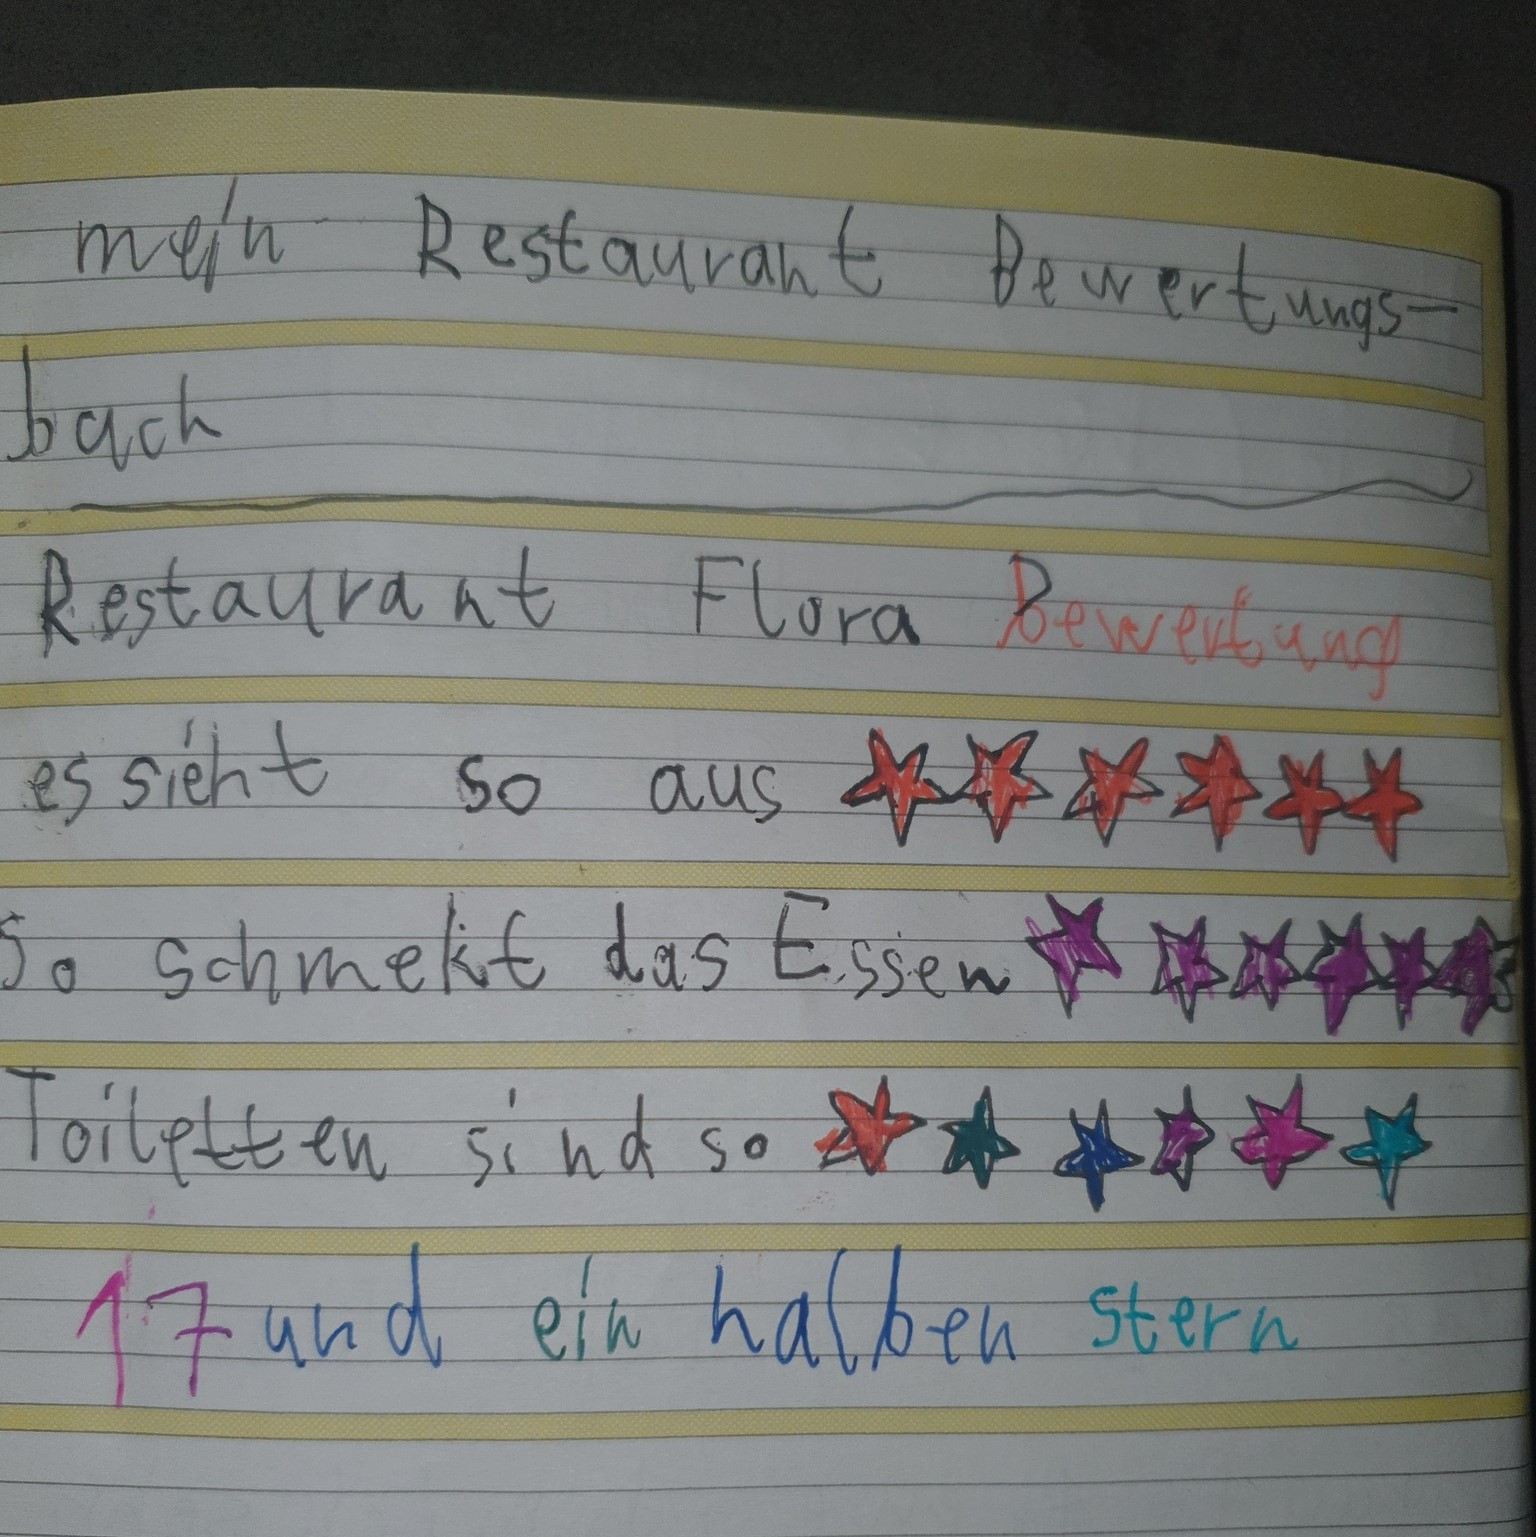 mein Restaurant Bewertungs-
bach
Restaurant Flora Bewertung
es sieht so aus
So schmekt das Essen
Toiletten sind so
17 und ein halben stern